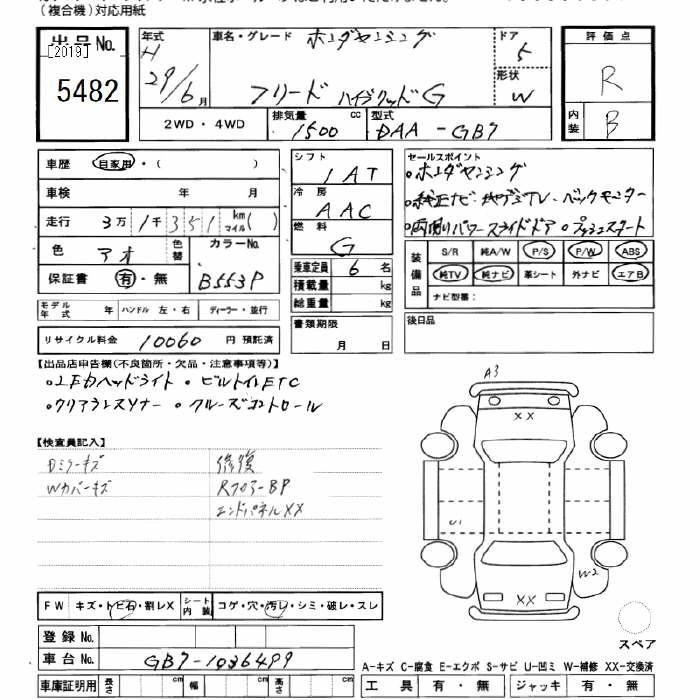 (複合機)対応用紙
出品No.
[2019]
5482
年式 H 29/6月
車名・グレード ホンダセンシング
フリード ハイブリッドG
ドア 5
形状 W
評価点 R
内装 B
2WD・4WD
排気量 1500 cc
型式 DAA-GB7
車歴 自家用・( )
車検 年 月
走行 3万1千351km マイル( )
色 アオ
色替
カラーNo. B553P
保証書 有・無
モデル年式 年
ハンドル 左・右
ディーラー・並行
リサイクル料金 10060 円 預託済
シフト IAT
冷房 AAC
燃料 G
乗車定員 6名
積載量 kg
総重量 kg
書類期限 月 日
セールスポイント
・ホンダセンシング
・純正ナビ・地デジTV・バックモニター
・両側パワースライドドア・プッシュスタート
装備品
S/R 純A/W P/S P/W ABS
純TV 純ナビ 革シート 外ナビ エアB
ナビ型番:
後日品
【出品店申告欄(不良箇所・欠品・注意事項等)】
・LEDヘッドライト・ビルトインETC
・クリアランスソナー・クルーズコントロール
【検査員記入】
Dミラーキズ
Wカバーキズ
修復
R フロアーBP
エンドパネルXX
A3
XX
U1
W2
XX
スペア
FW キズ・トビ石・割レX
シート内装 コゲ・穴・汚レ・シミ・破レ・スレ
登録No.
車台No. GB7-1036499
車庫証明用 長さ cm 幅 cm 高さ cm
A-キズ C-腐食 E-エクボ S-サビ U-凹ミ W-補修 XX-交換済
工具 有・無 ジャッキ 有・無